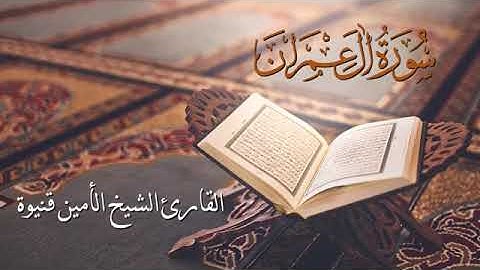 سُورَةُ آلِ عِمْرَانَ
القارئ الشيخ الأمين قنيوة